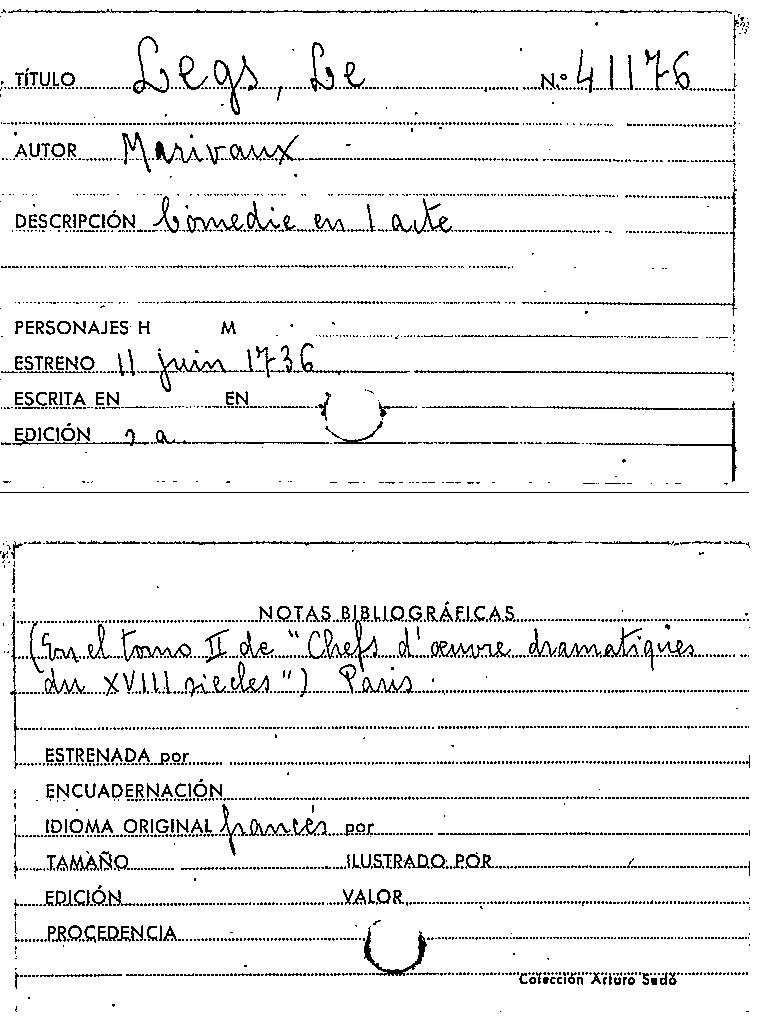 TÍTULO Legs, Le N.º 41176
AUTOR Marivaux
DESCRIPCIÓN Comedie en 1 acte
PERSONAJES H M
ESTRENO 11 juin 1736
ESCRITA EN EN
EDICIÓN s. a.
NOTAS BIBLIOGRÁFICAS
(En el tomo II de "Chefs d'œuvre dramatiques
du XVIII siecles") Paris.
ESTRENADA por
ENCUADERNACIÓN
IDIOMA ORIGINAL francés por
TAMAÑO ILUSTRADO POR
EDICIÓN VALOR
PROCEDENCIA
Colección Arturo Sedó